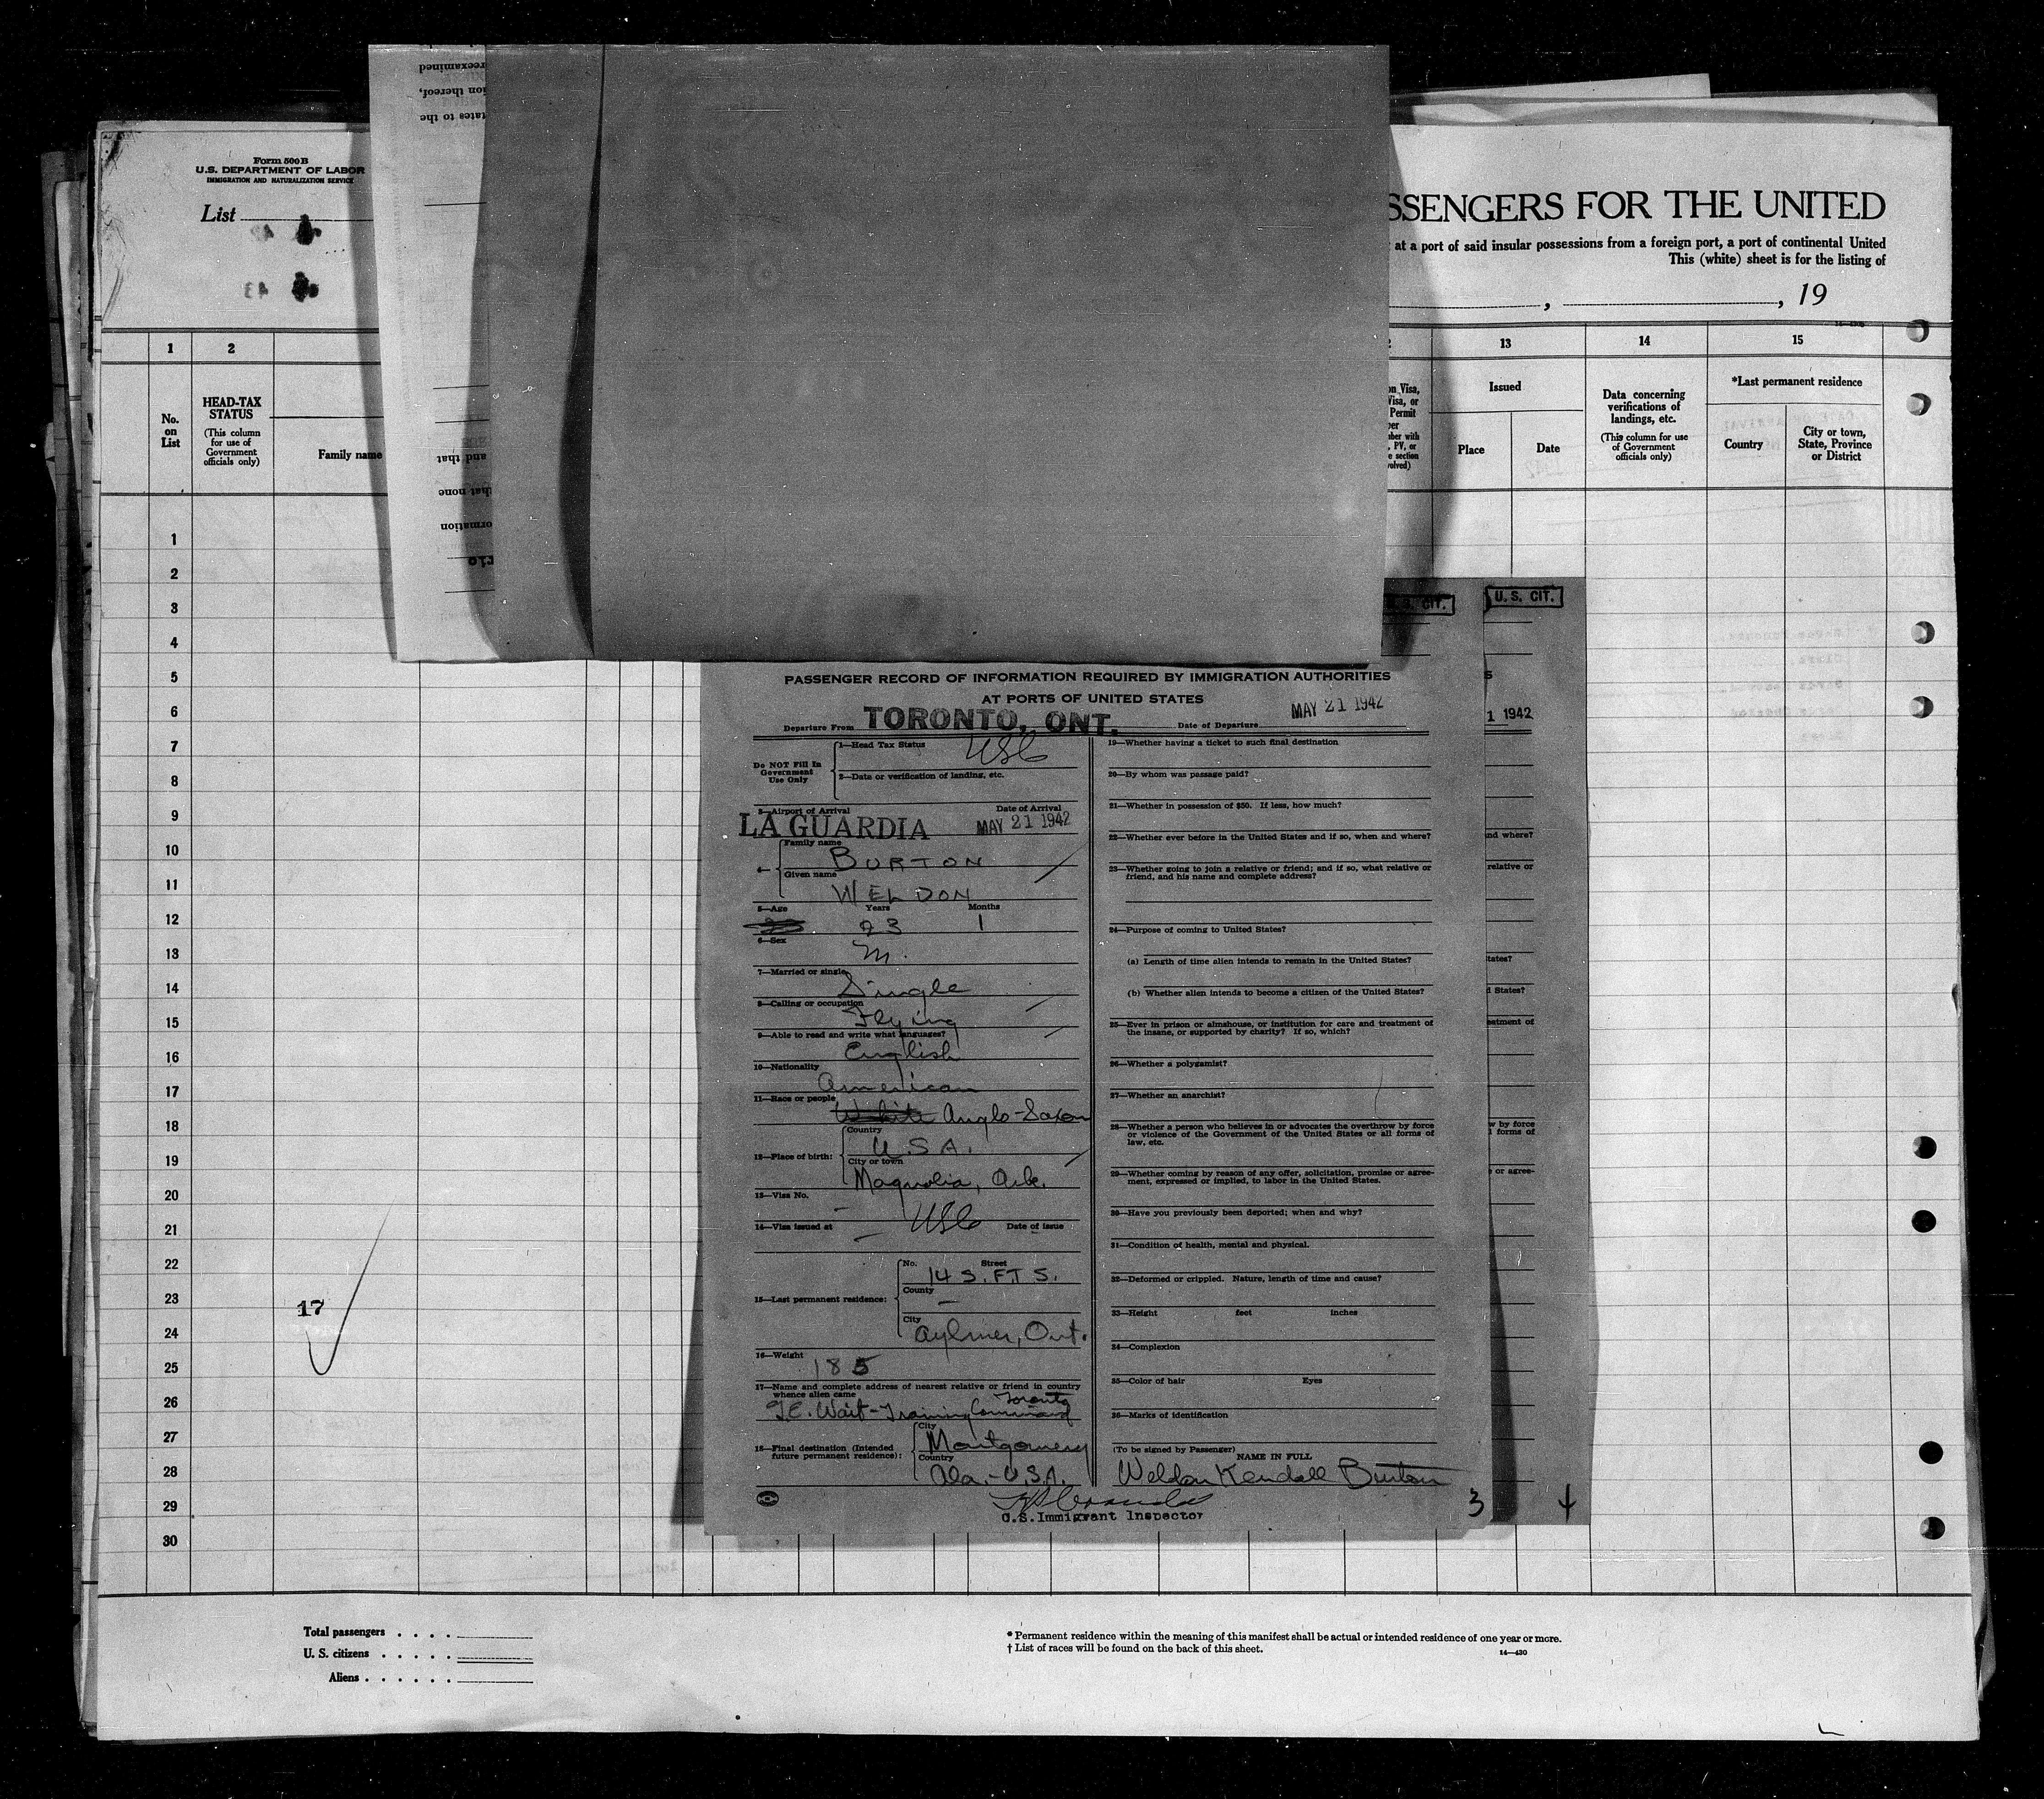 Form 500B
U.S. DEPARTMENT OF LABOR
IMMIGRATION AND NATURALIZATION SERVICE
List
SSENGERS FOR THE UNITED
at a port of said insular possessions from a foreign port, a port of continental United
This (white) sheet is for the listing of
, , 19
1 2 13 14 15
No. on List
HEAD-TAX STATUS
(This column for use of Government officials only)
Family name
Issued
Place Date
Data concerning verifications of landings, etc.
(This column for use of Government officials only)
*Last permanent residence
Country
City or town, State, Province or District
reexamined
ion thereof,
tates to the
and that
that none
ormation
1
2
3
4
5
6
7
8
9
10
11
12
13
14
15
16
17
18
19
20
21
22
23
24
25
26
27
28
29
30
17
U. S. CIT.
U. S. CIT.
1 1942
PASSENGER RECORD OF INFORMATION REQUIRED BY IMMIGRATION AUTHORITIES
AT PORTS OF UNITED STATES
Departure From TORONTO, ONT. Date of Departure MAY 21 1942
Do NOT Fill In Government Use Only
1—Head Tax Status USC
2—Data or verification of landing, etc.
3—Airport of Arrival Date of Arrival
LA GUARDIA MAY 21 1942
4— Family name BURTON
Given name WELDON
5—Age Years Months
23 1
6—Sex M.
7—Married or single Single
8—Calling or occupation Flying
9—Able to read and write what languages? English
10—Nationality American
11—Race or people White Anglo-Saxon
12—Place of birth: Country U.S.A.
City or town Magnolia, Ark.
13—Visa No. –
14—Visa issued at – USC Date of issue
15—Last permanent residence: No. Street 14 S.F.T.S.
County –
City Aylmer, Ont.
16—Weight 185
17—Name and complete address of nearest relative or friend in country whence alien came
T.C. Wait - Training Command Toronto
18—Final destination (Intended future permanent residence): City Montgomery
Country Ala.-U.S.A.
19—Whether having a ticket to such final destination
20—By whom was passage paid?
21—Whether in possession of $50. If less, how much?
22—Whether ever before in the United States and if so, when and where?
23—Whether going to join a relative or friend; and if so, what relative or
friend, and his name and complete address?
24—Purpose of coming to United States?
(a) Length of time alien intends to remain in the United States?
(b) Whether alien intends to become a citizen of the United States?
25—Ever in prison or almshouse, or institution for care and treatment of
the insane, or supported by charity? If so, which?
26—Whether a polygamist?
27—Whether an anarchist?
28—Whether a person who believes in or advocates the overthrow by force
or violence of the Government of the United States or all forms of
law, etc.
29—Whether coming by reason of any offer, solicitation, promise or agree-
ment, expressed or implied, to labor in the United States.
30—Have you previously been deported; when and why?
31—Condition of health, mental and physical.
32—Deformed or crippled. Nature, length of time and cause?
33—Height feet inches
34—Complexion
35—Color of hair Eyes
36—Marks of identification
(To be signed by Passenger)
NAME IN FULL
Weldon Kendall Burton
U.S. Immigrant Inspector
3 4
nd where?
relative or
tates?
d States?
eatment of
w by force
l forms of
e or agree-
Total passengers
U. S. citizens
Aliens
* Permanent residence within the meaning of this manifest shall be actual or intended residence of one year or more.
† List of races will be found on the back of this sheet.
14—430